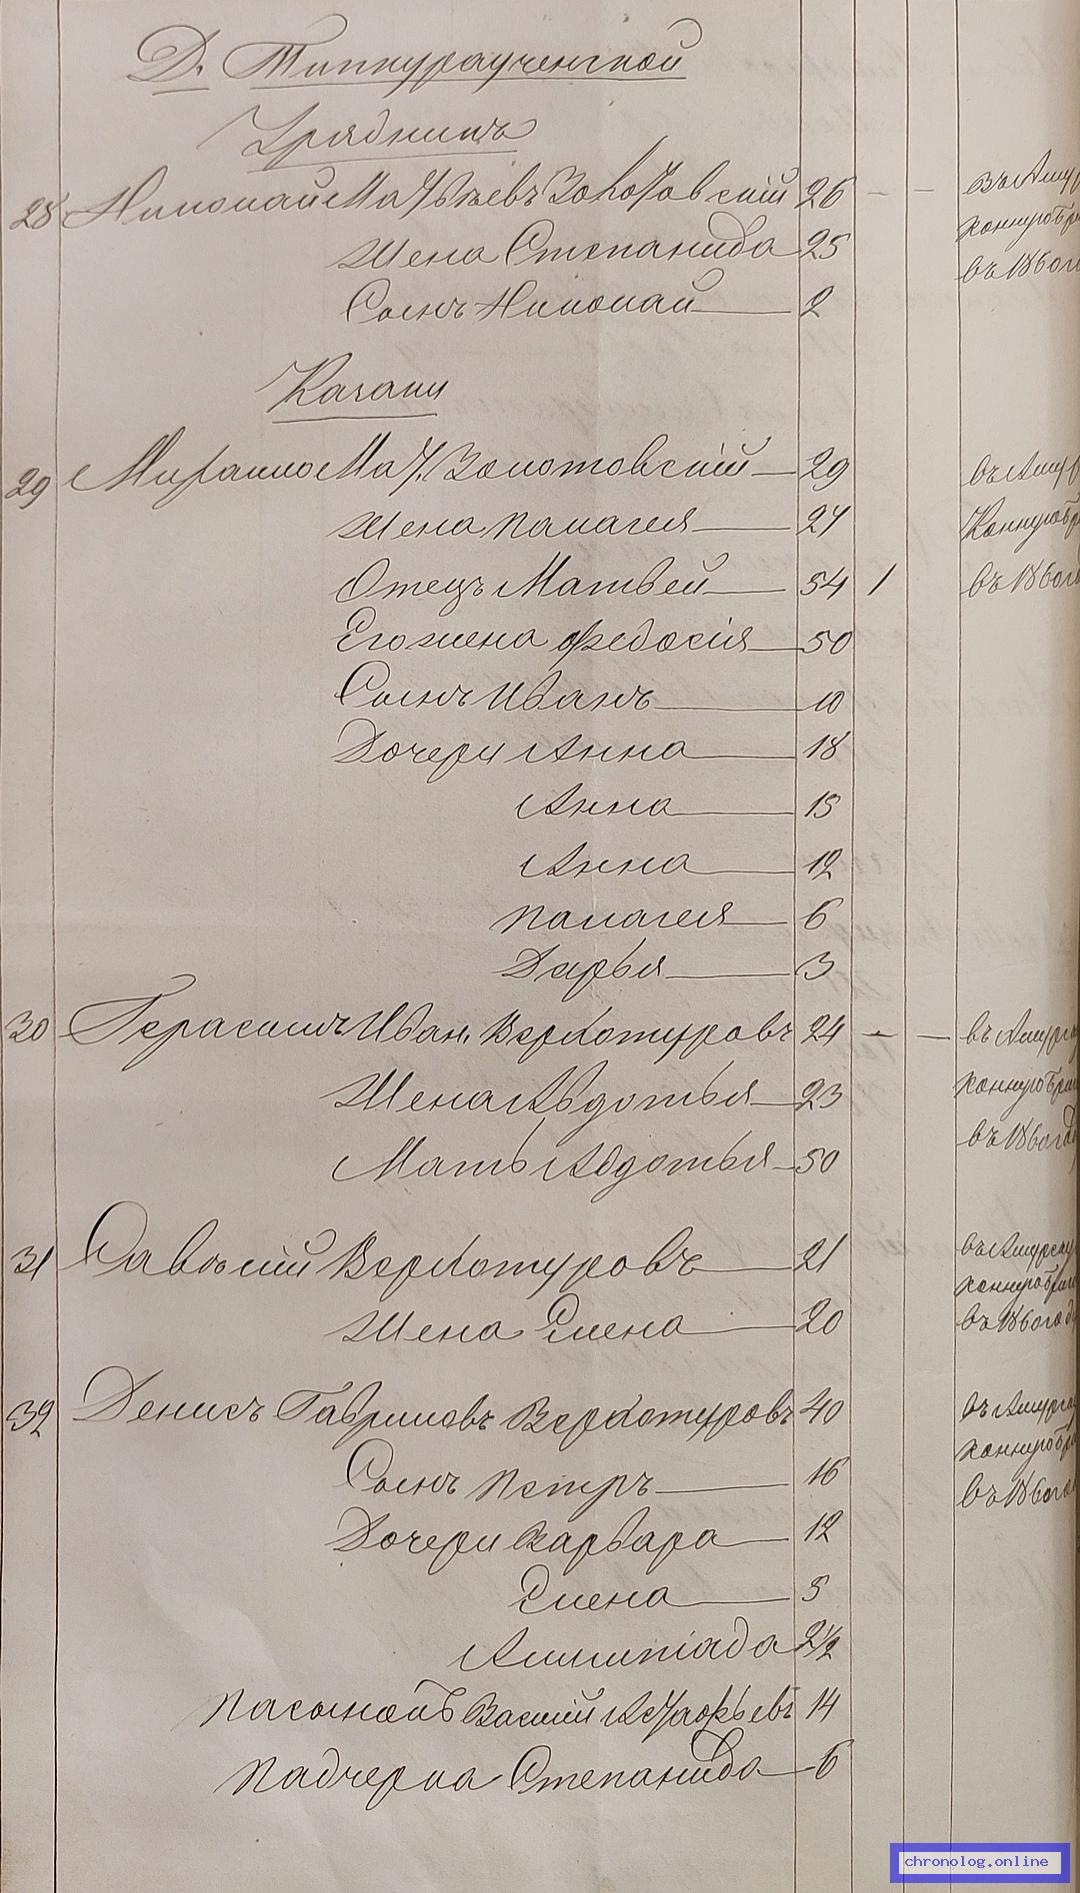 Д. Типкураученской
Урядникъ
28 Николай Матвѣевъ Золотовскій 26 — — въ Амур
конную бри
въ 1860 го
Жена Степанида 25
Сынъ Николай 2
Казаки
29 Михаило Мат. Золотовскій 29 въ Амур
Конную бр
въ 1860 го
Жена Палагея 24
Отецъ Матвей 54 1
Его жена Федосія 50
Сынъ Иванъ 10
Дочери Анна 18
Анна 15
Анна 12
Палагея 6
Дарья 3
30 Герасимъ Иван. Верхотуровъ 24 — — въ Амурск
конную бриг
въ 1860 году
Жена Авдотья 23
Мать Авдотья 50
31 Савелій Верхотуровъ 21 въ Амурскую
конную бриг
въ 1860 год
Жена Елена 20
32 Денисъ Гавриловъ Верхотуровъ 40 въ Амурск
конную бр
въ 1860 го
Сынъ Петръ 16
Дочери Варвара 12
Елена 5
Алимпіада 2 1/2
Пасынокъ Василій Астафьевъ 14
Падчерка Степанида 6
chronolog.online